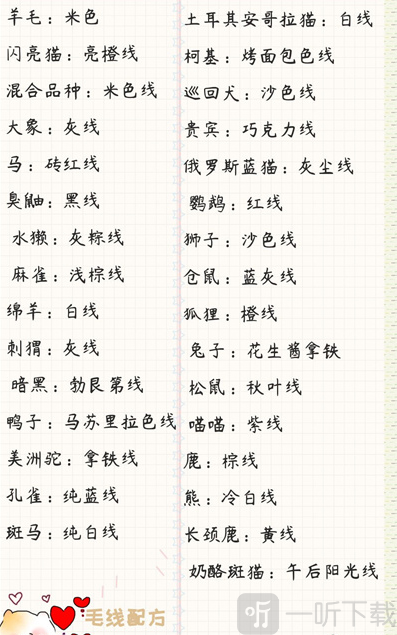 羊毛：米色
闪亮猫：亮橙线
混合品种：米色线
大象：灰线
马：砖红线
臭鼬：黑线
水獭：灰棕线
麻雀：浅棕线
绵羊：白线
刺猬：灰线
暗黑：勃艮第线
鸭子：马苏里拉色线
美洲驼：拿铁线
孔雀：纯蓝线
斑马：纯白线
土耳其安哥拉猫：白线
柯基：烤面包色线
巡回犬：沙色线
贵宾：巧克力线
俄罗斯蓝猫：灰尘线
鹦鹉：红线
狮子：沙色线
仓鼠：蓝灰线
狐狸：橙线
兔子：花生酱拿铁
松鼠：秋叶线
喵喵：紫线
鹿：棕线
熊：冷白线
长颈鹿：黄线
奶酪斑猫：午后阳光线
毛线配方
听 一听下载